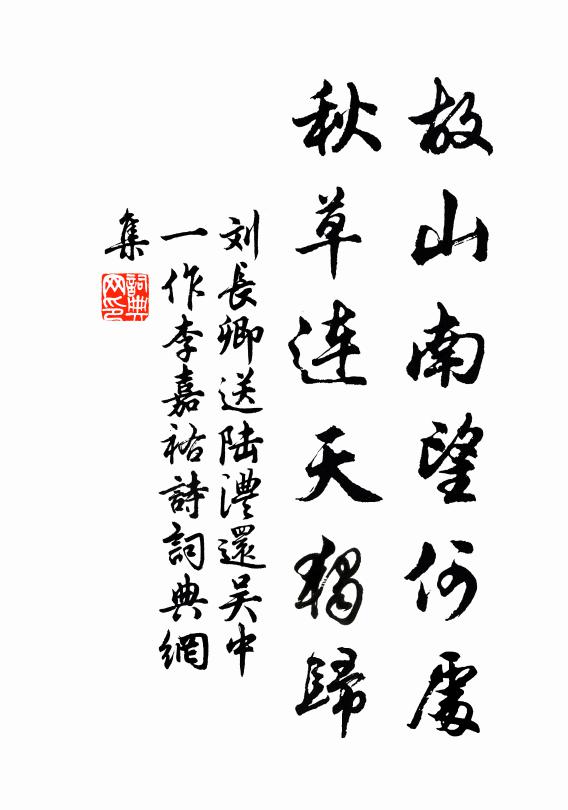 故山南望何處
秋草連天獨歸
刘長卿送陆澧還吴中
一作李嘉祐詩詞典網
集
詞典网印